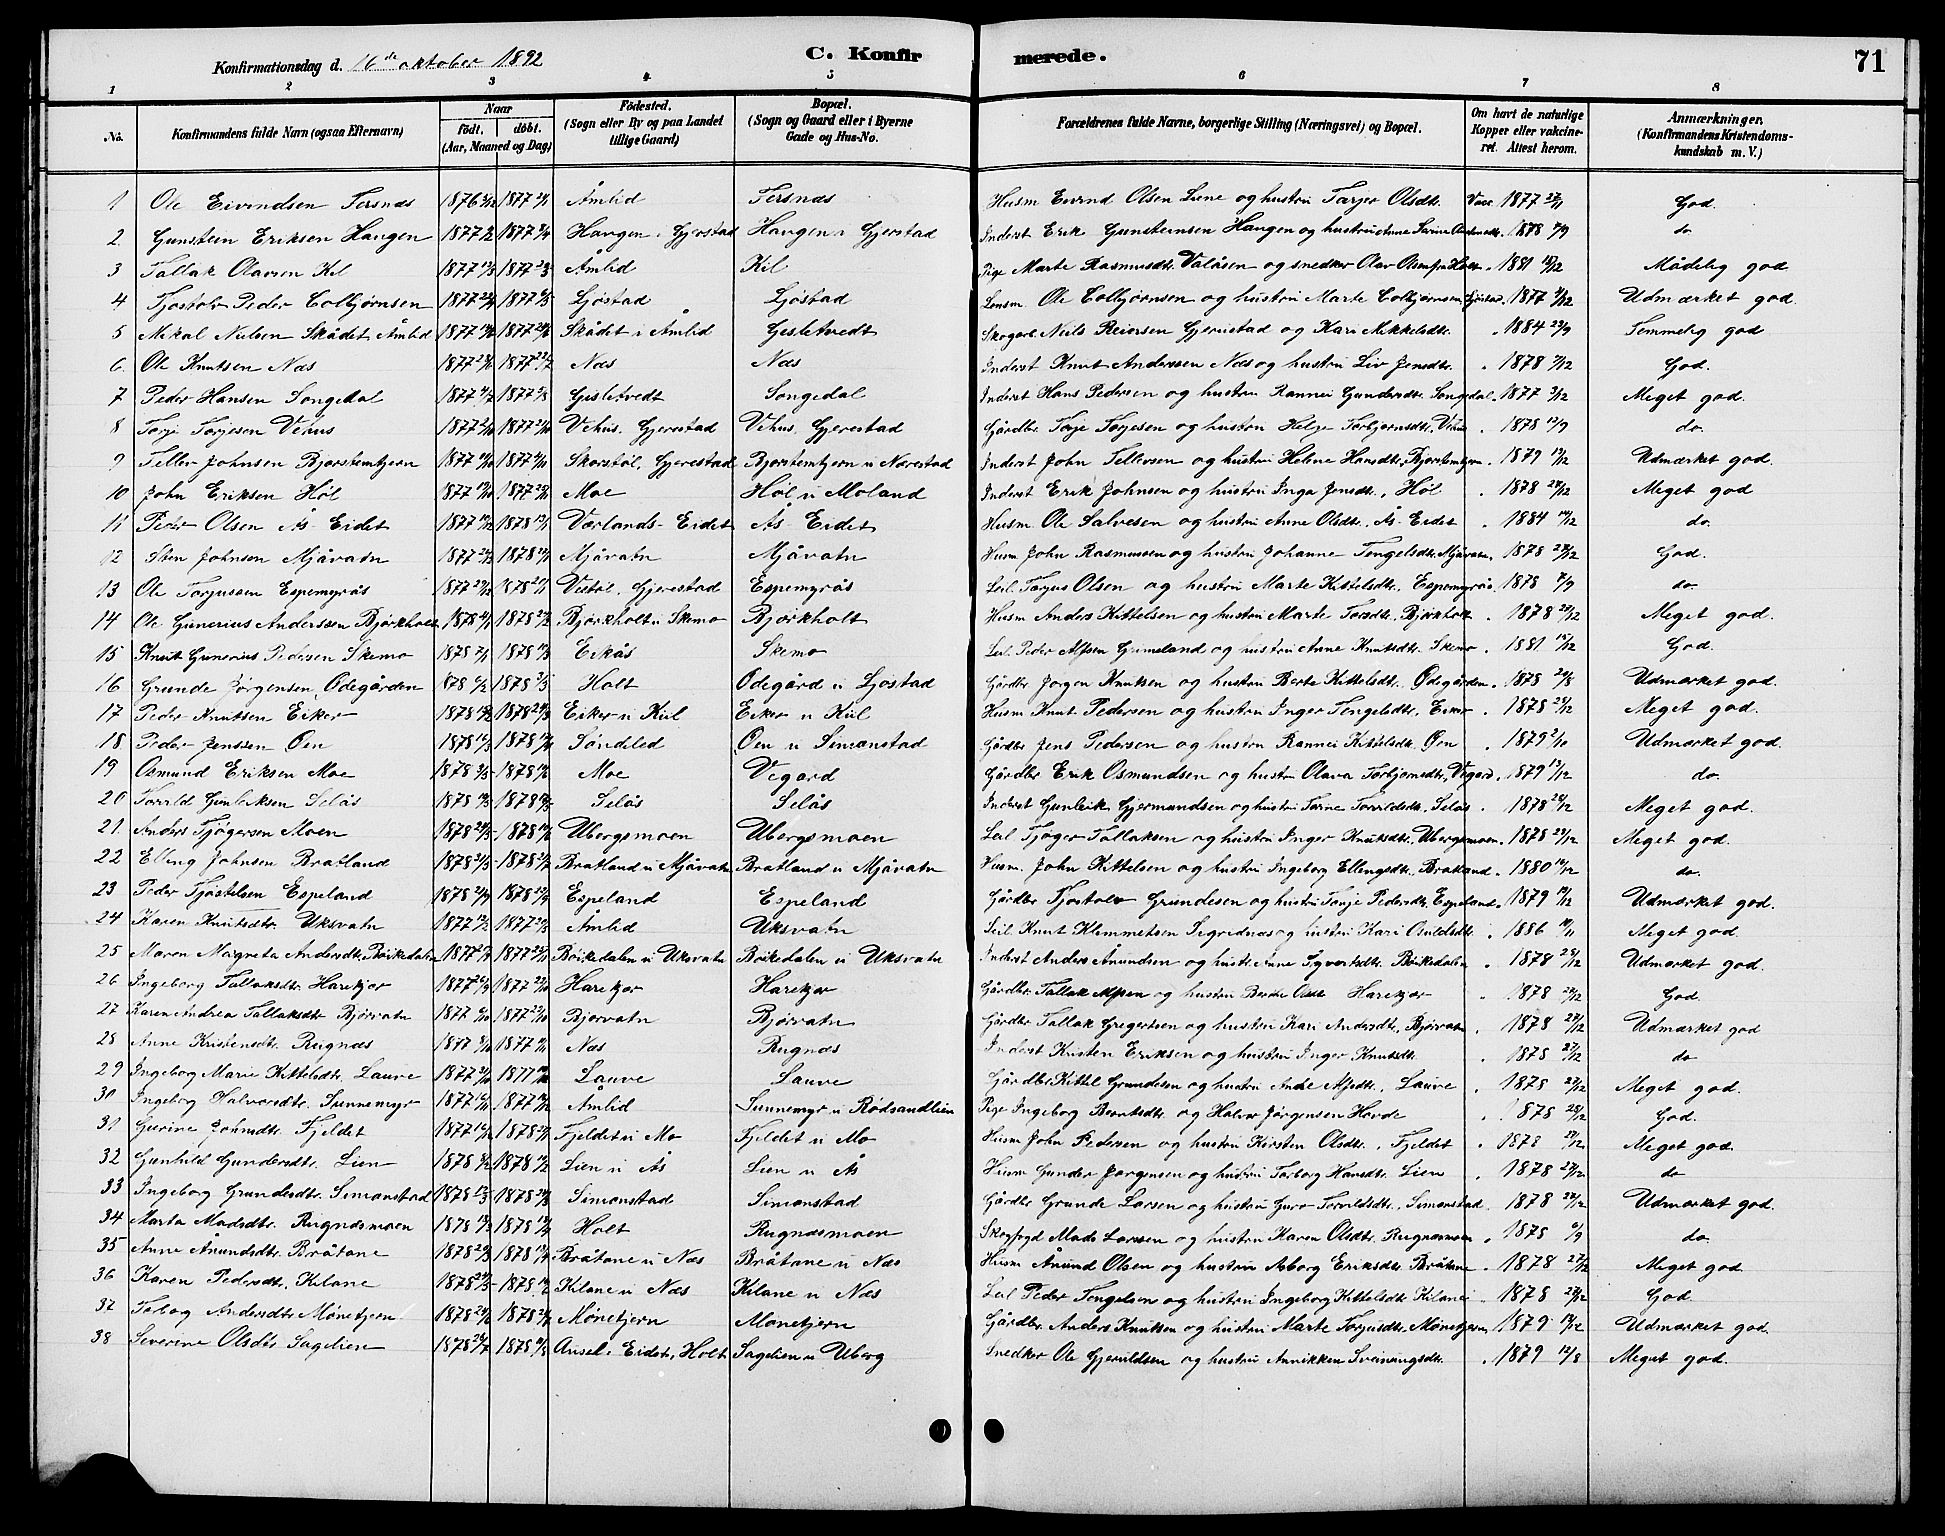 Konfirmationsdag d. 16de oktober 1892 C. Konfir merede. 71
1 2 3 4 5 6 7 8
No. Konfirmandens fulde Navn (ogsaa Efternavn) Naar födt. döbt. (Aar, Maaned og Dag) Födested. (Sogn eller By og paa Landet tillige Gaard) Bopæl. (Sogn og Gaard eller i Byerne Gade og Hus-No. Forældrenes fulde Navne, borgerlige Stilling (Næringsvei) og Bopæl. Om havt de naturlige Kopper eller vakcineret. Attest herom. Anmærkninger. (Konfirmandens Kristendomskundskab m. V.)
1 Ole Eivindsen Tersnæs 1876 1877 Åmlid Tersnæs Husm Eivind Olsen Liene og hustru Tarjer Olsdtr. Vacc 1877 God.
2 Gunstein Eriksen Haugen 1877 1877 Haugen i Gjerstad Haugen i Gjerstad Inderst Erik Gunsteinsen Haugen og hustru Anne 1878 7/9 do
3 Tallak Olavsen Kil 1877 1877 Åmlid Kil Pige Marte Rasmusdtr. Valåsen og snedker Olav Olsen fra Holt 1881 15/12 Mådelig god
4 Tjostolv Peder Colbjørnsen 1877 1877 Ljöstad Ljöstad Lensm Ole Colbjørnsen og hustru Marte Colbjørnsen, Ljöstad 1877 Udmærket god.
5 Mikal Nielsen Skådet Åmlid 1877 1877 Skådet i Åmlid Gisletvedt Skogarb. Neils Reiersen Gjerustad og Kari Mikkelsdtr. 1884 29/9 Temmelig god
6 Ole Knutsen Næs 1877 1877 Næs Næs Inderst Knut Anderssen Næs og hustru Liv Jensdtr. 1878 God.
7 Peder Hansen Songedal 1877 1877 Gisletvedt Songedal Inderst Hans Pedersen og hustru Rannei Gundersdtr. Songedal 1877 Meget god.
8 Torje Torjesen Vehus 1877 1877 Vehus, Gjerestad Vehus, Gjerestad Gårdbr. Torje Torjesen og hustru Helge Torbjørnsdtr, Vehus 1878 do.
9 Tellev Johnsen Bjorstemtjern 1877 1877 Skorstøl, Gjerestad Bjorstemtjern u Nærestad Inderst John Tellevsen og hustru Helene Hansdtr, Bjorstemtjern 1879 Udmærket god.
10 John Eriksen Høl 1877 1877 Moe Høl u Moland Inderst Erik Johnsen og hustru Inga Jensdtr, Høl 1878 Meget god
11 Peder Olsen Ås-Eidet 1877 1878 Værlands-Eidet Ås-Eidet Husm Ole Salvesen og hustru Anne Olsdtr, Ås-Eidet 1884 do.
12 Sten Johnsen Mjåvatn 1877 1878 Mjåvatn Mjåvatn Husm John Rasmusen og hustru Johanne Tengelsdtr, Mjåvatn 1878 God.
13 Ole Torjussen Espemyrås 1877 1878 Vestøl, Gjerestad Espemyrås Leil. Torjus Olsen og hustru Marte Kittelsdtr. Espemyrås 1878 7/9 do.
14 Ole Gunerius Anderssen Bjørkholt 1878 1878 Bjørkholt u Skemo Bjørkholt Husm Anders Kittelsen og hustru Marte Torsdtr, Bjørkholt 1878 Meget god.
15 Knut Gunerius Pedersen Skemo 1878 1878 Eikås Skemo Leil. Peder Alfsen Grimeland og hustru Anne Knutsdtr. Skemo 1881 15/12 God.
16 Grunde Jørgensen Ødegården 1878 1878 Holt Ødegård u Ljostad Gårdbr Jørgen Knutsen og hustru Berte Kittelsdtr. Ødegården 1878 Udmærket god.
17 Peder Knutsen Eiker 1878 1878 Eiker u Kiil Eiker u Kiil Husm Knut Pedersen og hustru Inger Tengelsdtr, Eiker 1878 Meget god.
18 Peder Jenssen Øen 1878 1878 Søndeled Øen u Simonstad Gårdbr Jens Pedersen og hustru Rannei Kittelsdtr. Øen 1879 Udmærket god.
19 Osmund Eriksen Moe 1878 1878 Moe Vegard Gårdbr Erik Osmundsen og hustr. Olava Torbjørnsdtr, Vegard 1879 do.
20 Torvld Gunleiksen Selås 1878 1878 Selås Selås Inderst Gunleik Gjermundsen og hustru Torne Torvldsdtr. Selås 1878 Meget god.
21. Anders Tjøgersen Moen 1878 1878 Ubergsmoen Ubergsmoen Leil Tjøger Tallaksen og hustru Inger Knutsdtr, Ubergsmoen 1878 Meget god.
22 Elling Johnsen Bratland 1878 1878 Bratland u Mjåvatn Bratland u Mjåvatn Husm John Kittelsen og hustru Ingeborg Ellengsdtr. Bratland 1880 do.
23 Peder Tjøstelsen Espeland 1878 1878 Espeland Espeland Gårdbr Tjostolv Grundesen og hustru Tonje Pedersdtr Espeland 1879 Udmærket god.
24 Karen Knutsdtr Uksvatn 1877 1877 Åmlid Uksvatn Leil Knut Klemmetsen Sigridnæs og hustru Kari Oruldsdtr 1886 Meget god.
25 Maren Margreta Andersdtr Böikedalen 1877 1877 Böikedalen u Uksvatn Böikedalen u Uksvatn Inderst Anders Anundsen og hustr. Anne Sigvartsdtr. Böikedalen 1878 Udmærket god.
26 Ingeborg Tallaksdtr Harekjær 1877 1877 Harekjær Harekjær Gårdbr Tallak Alfsen og hustru Berthe Olsdtr Harekjær 1878 God.
27 Karen Andrea Tallaksdtr Bjørvatn 1877 1877 Bjørvatn Bjørvatn Gårdbr Tallak Gregertsen og hustru Kari Andersdtr, Bjørvatn 1878 Udmærket god
28 Anne Kristensdtr. Rugnæs 1877 1877 Næs Rugnæs Inderst Kristen Eriksen og hustru Inger Knutsdtr 1878 do
29 Ingeborg Marie Kittelsdtr. Lauve 1877 1877 Lauve Lauve Gårdbr Kittel Grundesen og hustru Anne Alfsdtr, Lauve 1878 Meget god.
30 Ingeborg Halvorsdtr. Sunnemyr 1877 1877 Åmlid Sunnemyr u Rödsandlien Pige Ingeborg Berntsdtr. og Halvor Jørgensen Hovde 1878 God.
31 Gurine Johnsdtr. Fjeldet 1877 1878 Fjeldet u Mo Fjeldet u Mo Husm John Pedersen og hustru Kirsten Olsdtr, Fjeldet 1878 Meget god.
32 Gunhild Gundersdtr. Lien 1878 1878 Lien u Ås Lien u Ås Husm Gunder Jørgensen og hustru Torborg Hansdtr. Lien 1878 do
33 Ingeborg Grundesdtr. Simonstad 1878 1878 Simonstad Simonstad Gårdbr Grunde Larsen og hustru Guro Torvldsdtr, Simonstad 1878 Udmærket god.
34 Marta Madsdtr. Rugnæsmoen 1878 1878 Holt Rugnæsmoen Skogfogd Mads Larssen og hustru Karen Olsdtr. Rugnæsmoen 1878 6/9 do.
35 Anne Ånundsdtr. Bråtane 1878 1878 Bråtane u Næs Bråtane u Næs Husm Ånund Olsen og hustru Asborg Eriksdtr. Bråtane 1878 27/12 Meget god
36 Karen Pedersdtr. Kilane 1878 1878 Kilane u Næs Kilane u Næs Leil Peder Tengelsen og hustru Ingeborg Kittelsdtr Kilane 1878 God.
37 Torborg Andersdtr Mönetjern 1878 1878 Mönetjern Mönetjern Gårdbr. Anders Knutsen og hustru Marte Torjusdtr. Mönetjern 1879 Udmærket god.
38 Severine Olsdtr Sagelien 1878 1878 Ausel. Eidet, Holt Sagelien u Uberg Snedker Ole Gjeruldsen og hustru Annikken Sveinungsdtr. 1879 12/8 Meget god.